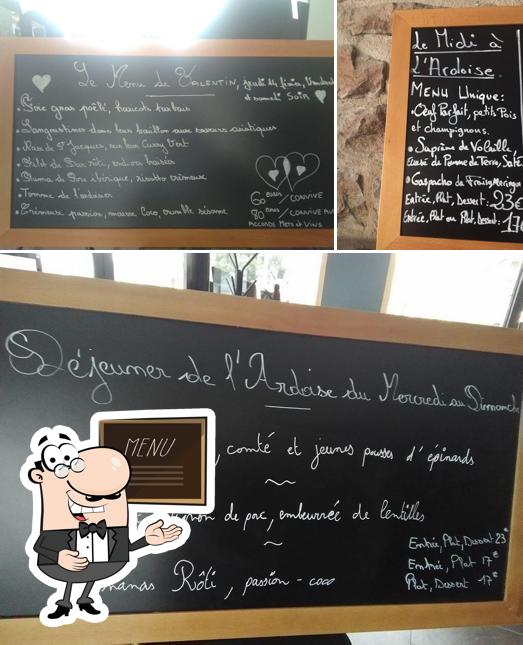 Le Menu de Valentin, jeudi
et samedi Soir
Foie gras poêlé, haricots
Langoustines dans leur bouillon aux saveurs asiatiques
Noix de St Jacques, Curry Vert
Filet de Bar rôti, endives braisées
Pluma de Porc ibérique, risotto crémeux
Tomme de l'ardoisier
Crémeux passion, mousse Coco, crumble sésame
60 euros / CONVIVE
80 euros / CONVIVE AVEC
ACCORDS Mets et Vins
Le Midi à
L'Ardoise
MENU UNIQUE:
• Oeuf Parfait, petits Pois
et champignons.
• Suprême de Volaille,
Ecrasé de Pomme de Terre, Saté
• Gaspacho de Fraises, Meringue
Entrée, Plat, Dessert: 23€
Entrée, Plat ou Plat, Dessert: 17€
Déjeuner de l'Ardoise du Mercredi au Dimanche
, comté et jeunes pousses d'épinards
MENU
de porc, embeurrée de lentilles
Entrée, Plat, Dessert 23€
Entrée, Plat 17€
Plat, Dessert 17€
nanas Rôti, passion - coco